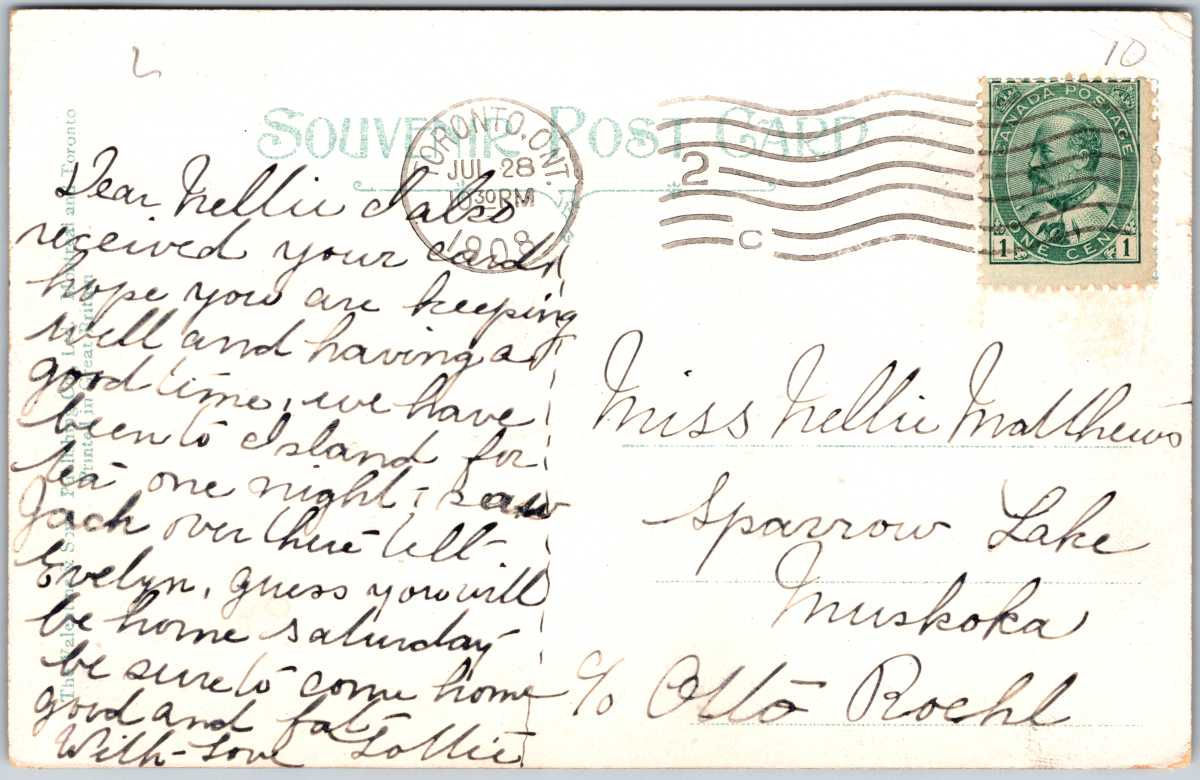 10
SOUVENIR POST CARD
TORONTO, ONT.
JUL 28
10 30 PM
1908
2
C
CANADA POSTAGE
1 ONE CENT 1
Dear Nellie I also
received your card,
hope you are keeping
well and having a
good time, we have
been to Island for
tea one night, saw
Jack over there tell
Evelyn, guess you will
be home saturday
be sure to come home
good and fat
With-Love Lottie
Miss Nellie Matthews
Sparrow Lake
Muskoka
c/o Otto Roehl
The Valentine & Sons Publishing Co. Ltd. Montreal and Toronto
Printed in Great Britain